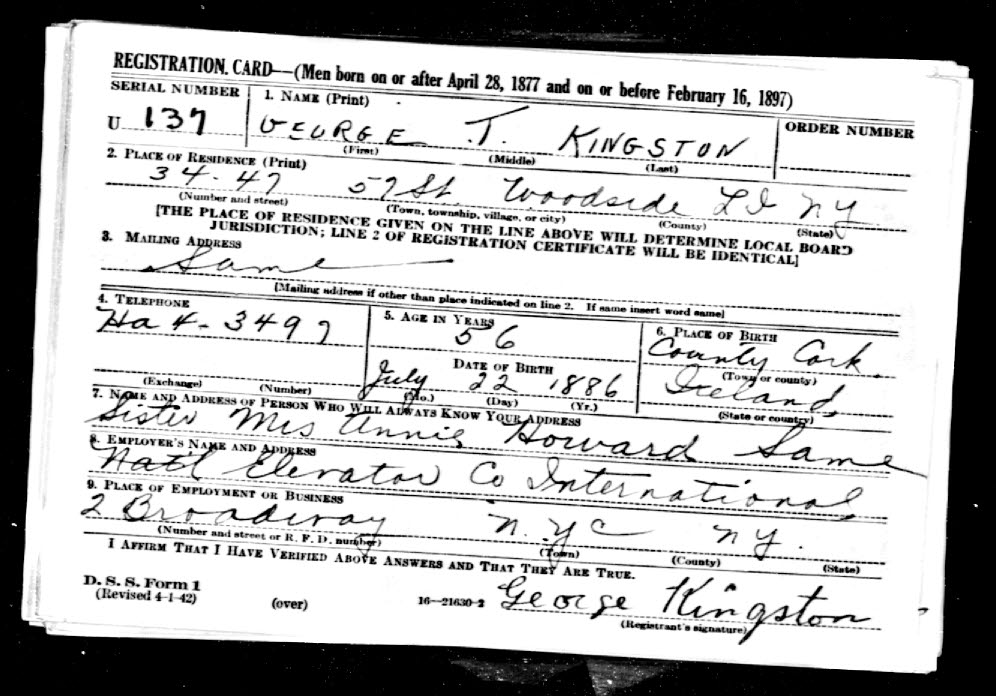 REGISTRATION CARD—(Men born on or after April 28, 1877 and on or before February 16, 1897)
SERIAL NUMBER 1. NAME (Print) ORDER NUMBER
U 137 GEORGE T. KINGSTON
(First) (Middle) (Last)
2. PLACE OF RESIDENCE (Print)
34-47 57 St. Woodside L I NY
(Number and street) (Town, township, village, or city) (County) (State)
[THE PLACE OF RESIDENCE GIVEN ON THE LINE ABOVE WILL DETERMINE LOCAL BOARD
JURISDICTION; LINE 2 OF REGISTRATION CERTIFICATE WILL BE IDENTICAL]
3. MAILING ADDRESS
Same
[Mailing address if other than place indicated on line 2. If same insert word same]
4. TELEPHONE 5. AGE IN YEARS 6. PLACE OF BIRTH
Ha 4-3497 56 County Cork
DATE OF BIRTH (Town or county)
July 22 1886 Ireland
(Exchange) (Number) (Mo.) (Day) (Yr.) (State or country)
7. NAME AND ADDRESS OF PERSON WHO WILL ALWAYS KNOW YOUR ADDRESS
Sister Mrs Annie Howard Same
8. EMPLOYER'S NAME AND ADDRESS
Nat'l Elevator Co International
9. PLACE OF EMPLOYMENT OR BUSINESS
2 Broadway N.Y.C N.Y.
(Number and street or R. F. D. number) (Town) (County) (State)
I AFFIRM THAT I HAVE VERIFIED ABOVE ANSWERS AND THAT THEY ARE TRUE.
D. S. S. Form 1
(Revised 4-1-42) (over) 16—21630-2 George Kingston
(Registrant's signature)